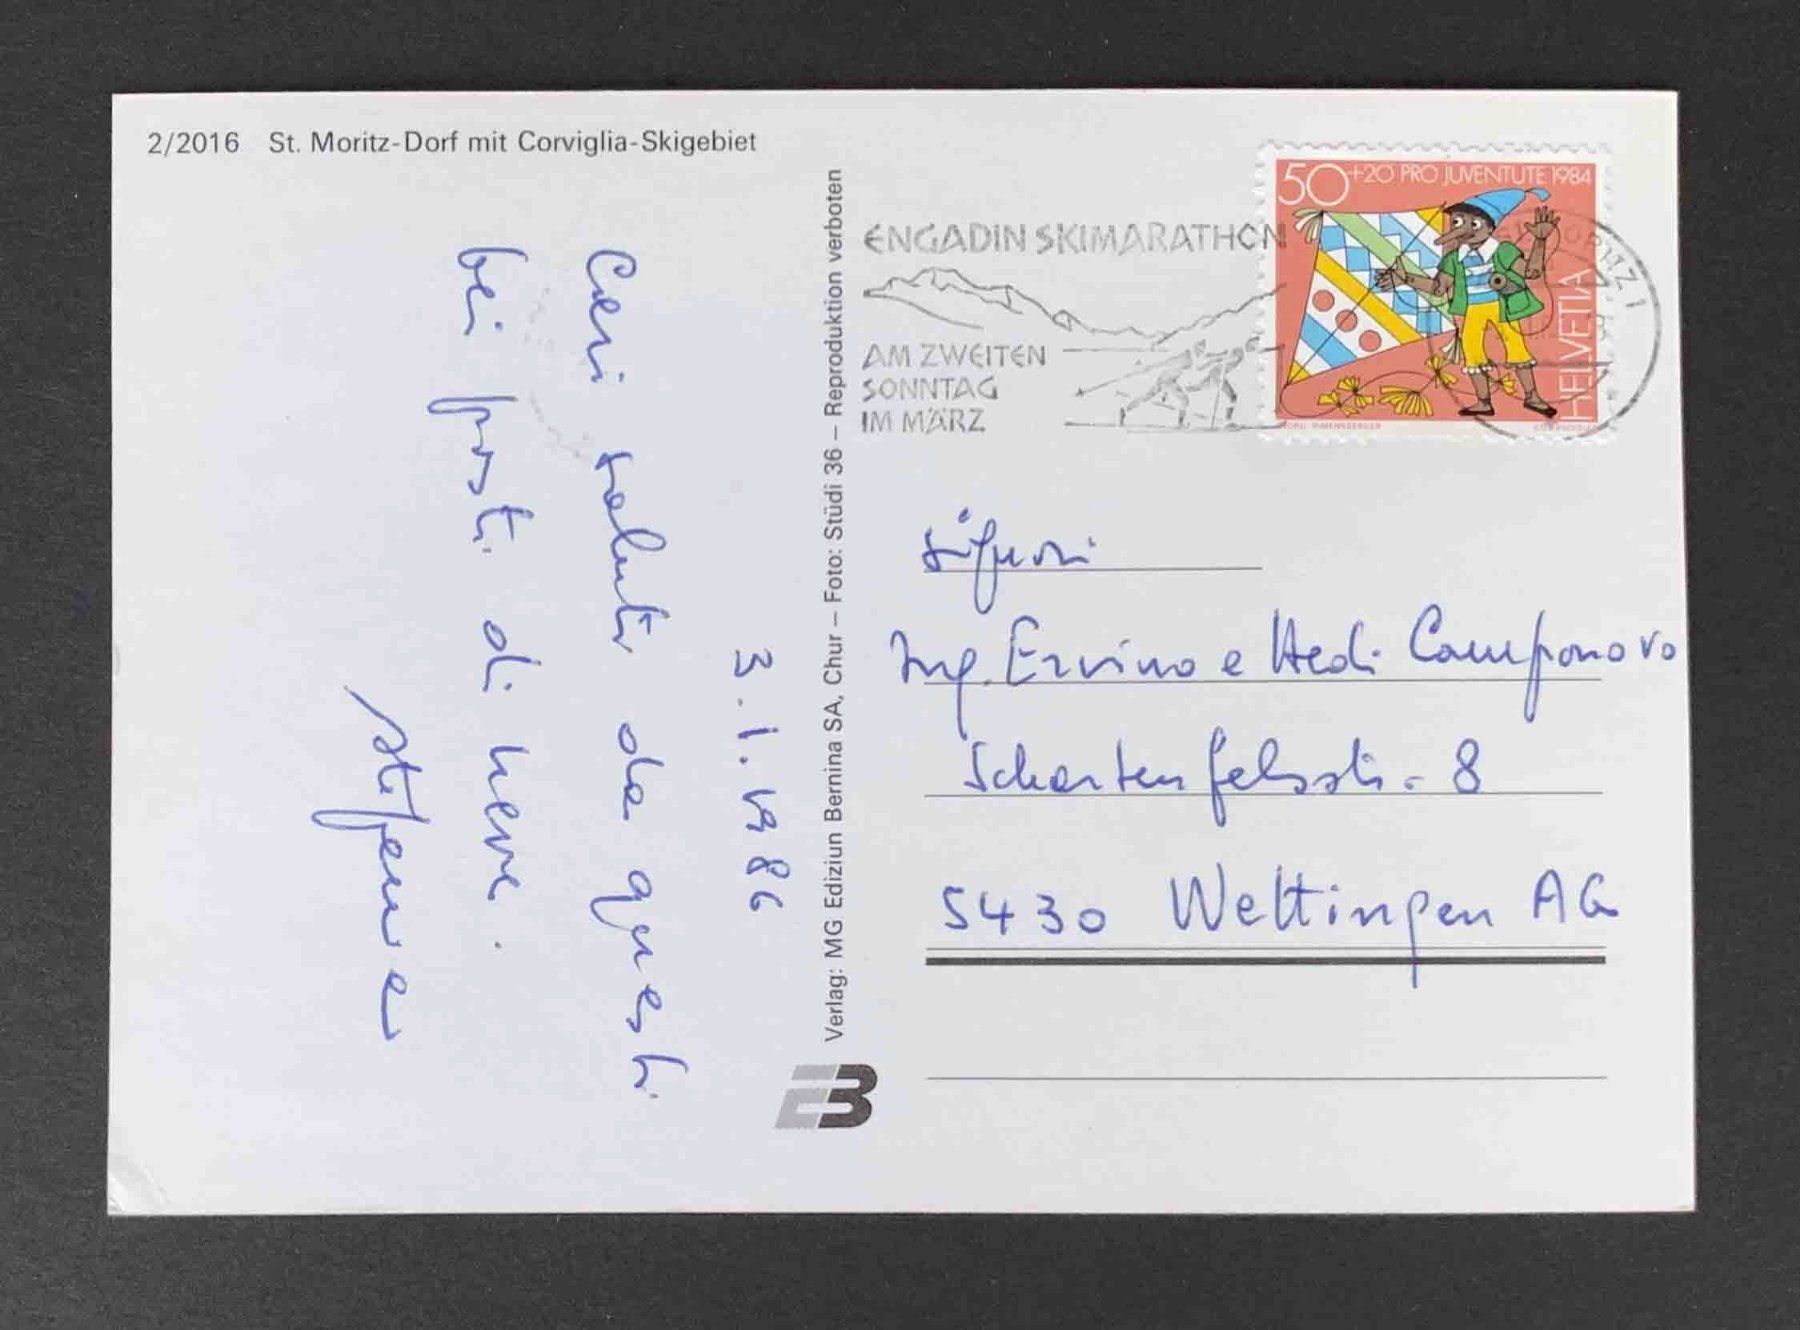 2/2016 St. Moritz-Dorf mit Corviglia-Skigebiet
3.1.1986
Cari saluti da questi
bei posti di neve.
Stefania
Verlag: MG Ediziun Bernina SA, Chur – Foto: Stüdi 36 – Reproduktion verboten
ENGADIN SKIMARATHON
AM ZWEITEN
SONNTAG
IM MÄRZ
50+20 PRO JUVENTUTE 1984
HELVETIA
MORITZ 1
Signori
Ing. Ervino e Hedi Camponovo
Schartenfelsstr. 8
5430 Wettingen AG